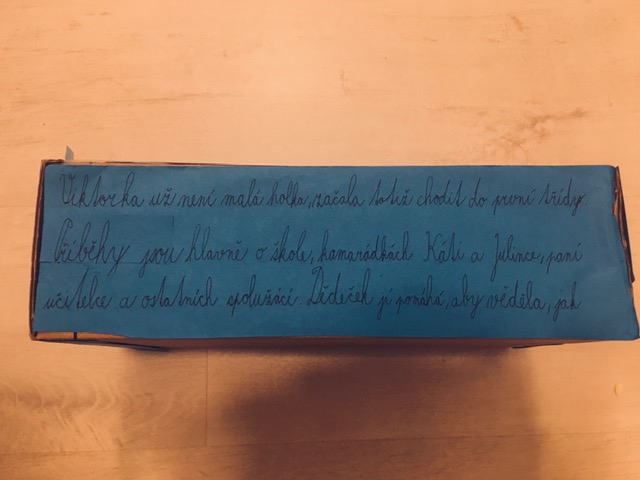 Viktorka už není malá holka, začala totiž chodit do první třídy.
Příběhy jsou hlavně o škole, kamarádkách Káti a Julince, paní
učitelce a ostatních spolužácí. Dědeček jí pomáhá, aby věděla, jak